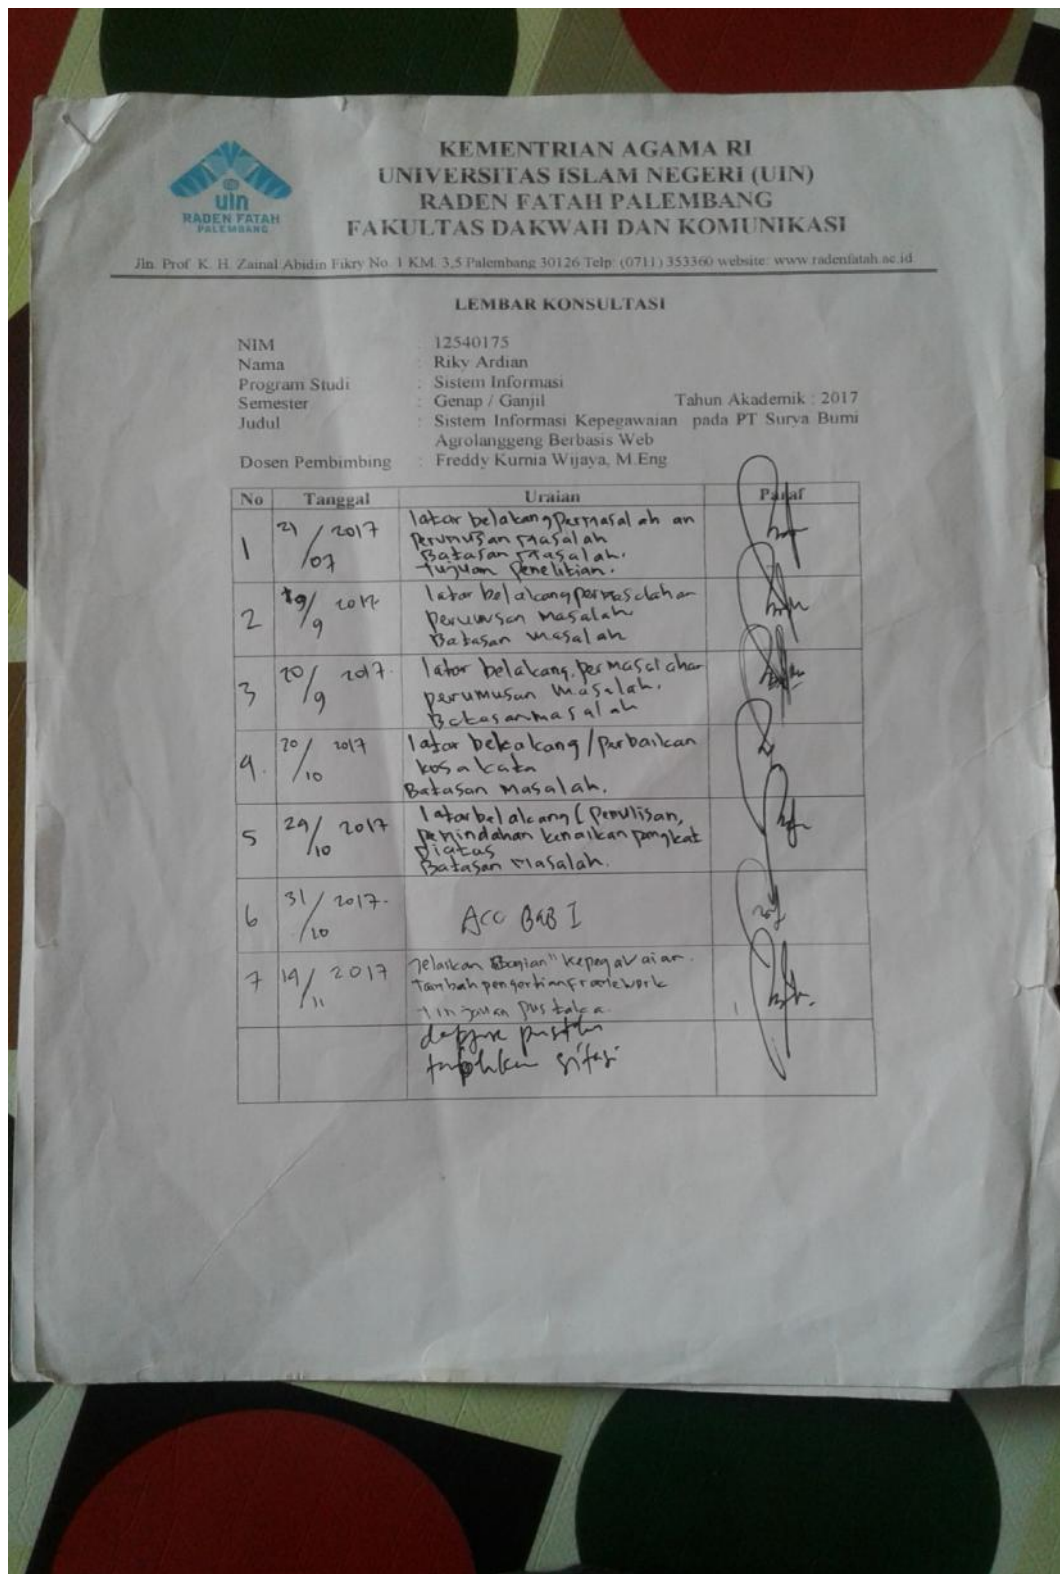 uin
RADEN FATAH
PALEMBANG
KEMENTRIAN AGAMA RI
UNIVERSITAS ISLAM NEGERI (UIN)
RADEN FATAH PALEMBANG
FAKULTAS DAKWAH DAN KOMUNIKASI
Jln. Prof. K. H. Zainal Abidin Fikry No. 1 KM. 3,5 Palembang 30126 Telp: (0711) 353360 website: www.radenfatah.ac.id
LEMBAR KONSULTASI
NIM : 12540175
Nama : Riky Ardian
Program Studi : Sistem Informasi
Semester : Genap / Ganjil Tahun Akademik : 2017
Judul : Sistem Informasi Kepegawaian pada PT Surya Bumi
Agrolanggeng Berbasis Web
Dosen Pembimbing : Freddy Kurnia Wijaya, M.Eng
No Tanggal Uraian Paraf
1 21/07 2017 latar belakang permasalahan
Perumusan Masalah
Batasan Masalah.
Tujuan Penelitian.
2 19/9 2017 latar belakang permasalahan
perumusan Masalah
Batasan Masalah
3 20/9 2017. lator belakang. permasalahan
perumusan Masalah.
Batasan masalah
4. 20/10 2017 latar belakang / perbaikan
kosakata
Batasan Masalah.
5 29/10 2017 latar belakang (Penulisan,
pemindahan kenaikan pangkat
diatas
Batasan Masalah.
6 31/10 2017. Acc BAB I
7 19/11 2017 Jelaskan Bagian" kepegawaian.
Tambah pengertian Framework
Tinjauan pustaka.
sitasi